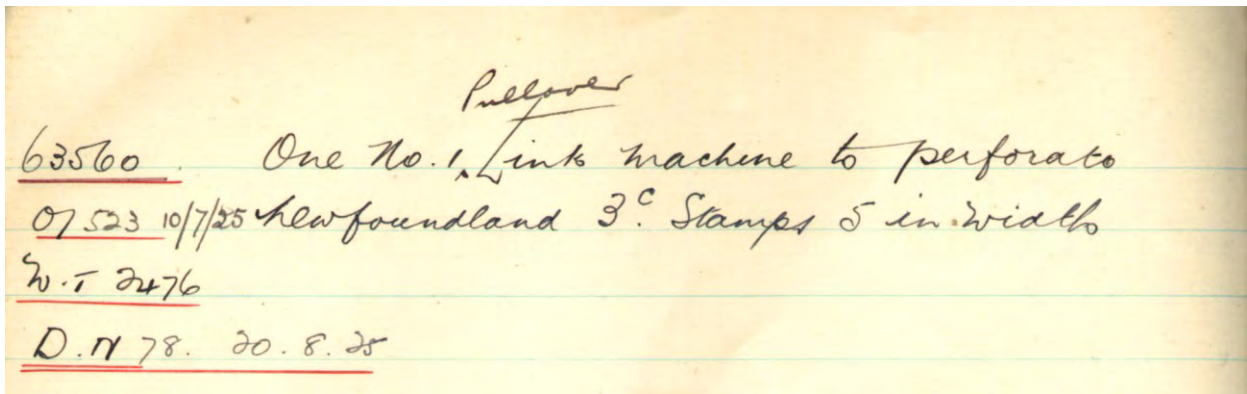 Pullover
63560. One No. 1. Link machine to perforate
O/523 10/7/25 Newfoundland 3c. Stamps 5 in width
W.T 2476
D.N 78. 20.8.25